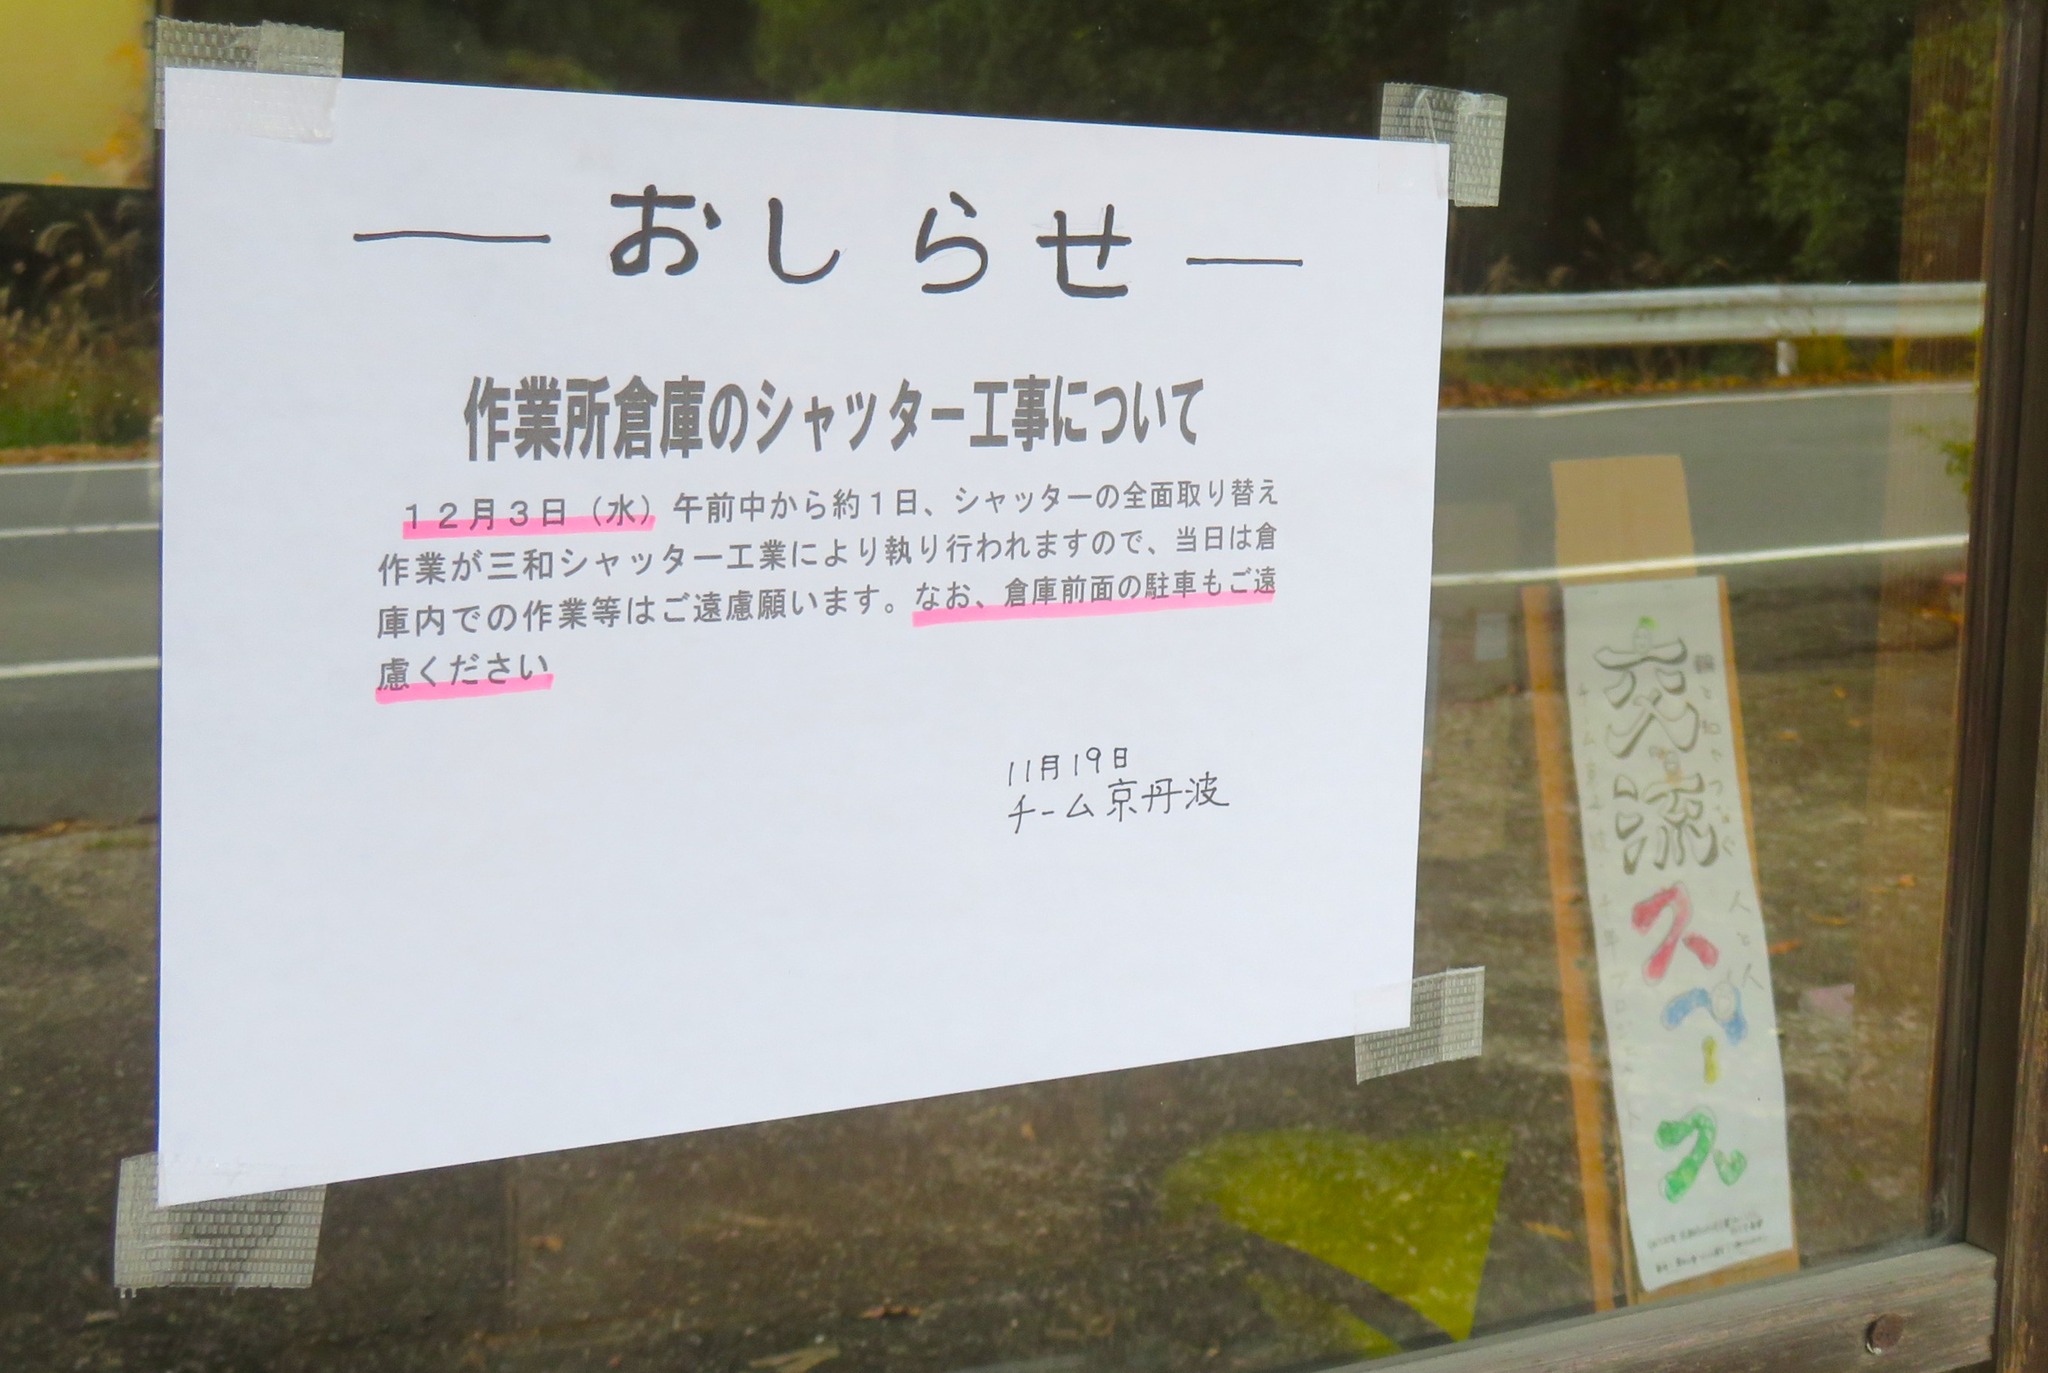 ― おしらせ ―
作業所倉庫のシャッター工事について
１２月３日（水）午前中から約１日、シャッターの全面取り替え
作業が三和シャッター工業により執り行われますので、当日は倉
庫内での作業等はご遠慮願います。なお、倉庫前面の駐車もご遠
慮ください
11月19日
チーム京丹波
交流スペース
人と人